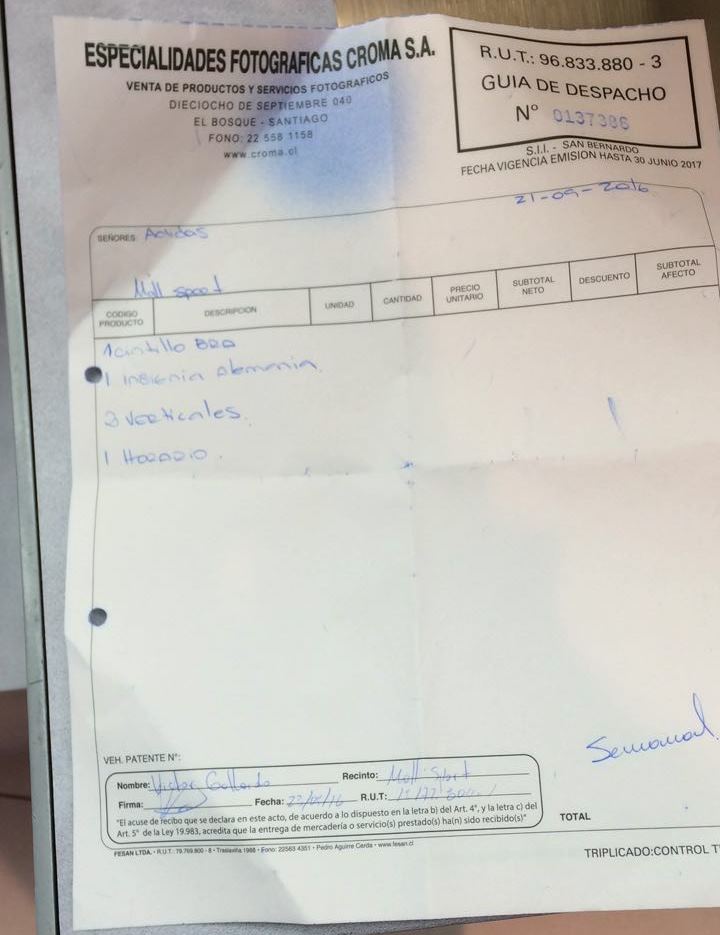 ESPECIALIDADES FOTOGRAFICAS CROMA S.A.
VENTA DE PRODUCTOS Y SERVICIOS FOTOGRAFICOS
DIECIOCHO DE SEPTIEMBRE 040
EL BOSQUE - SANTIAGO
FONO: 22 558 1158
www.croma.cl
R.U.T.: 96.833.880 - 3
GUIA DE DESPACHO
N° 0137386
S.I.I. - SAN BERNARDO
FECHA VIGENCIA EMISION HASTA 30 JUNIO 2017
21-09-2016
SEÑORES: Adidas
Mall sport
CODIGO PRODUCTO DESCRIPCION UNIDAD CANTIDAD PRECIO UNITARIO SUBTOTAL NETO DESCUENTO SUBTOTAL AFECTO
1 BRA
1 Insignia Alemania.
3 Verticales.
1 Horario.
Semanal.
VEH. PATENTE N°:
Nombre: Victor Gallardo Recinto: Mall Sport
Firma: Fecha: R.U.T.:
"El acuse de recibo que se declara en este acto, de acuerdo a lo dispuesto en la letra b) del Art. 4°, y la letra c) del
Art. 5° de la Ley 19.983, acredita que la entrega de mercadería o servicio(s) prestado(s) ha(n) sido recibido(s)"
TOTAL
FESAN LTDA. • R.U.T. 79.769.800 - 8 • Traslaviña 1988 • Fono: 22563 4351 • Pedro Aguirre Cerda • www.fesan.cl
TRIPLICADO:CONTROL T